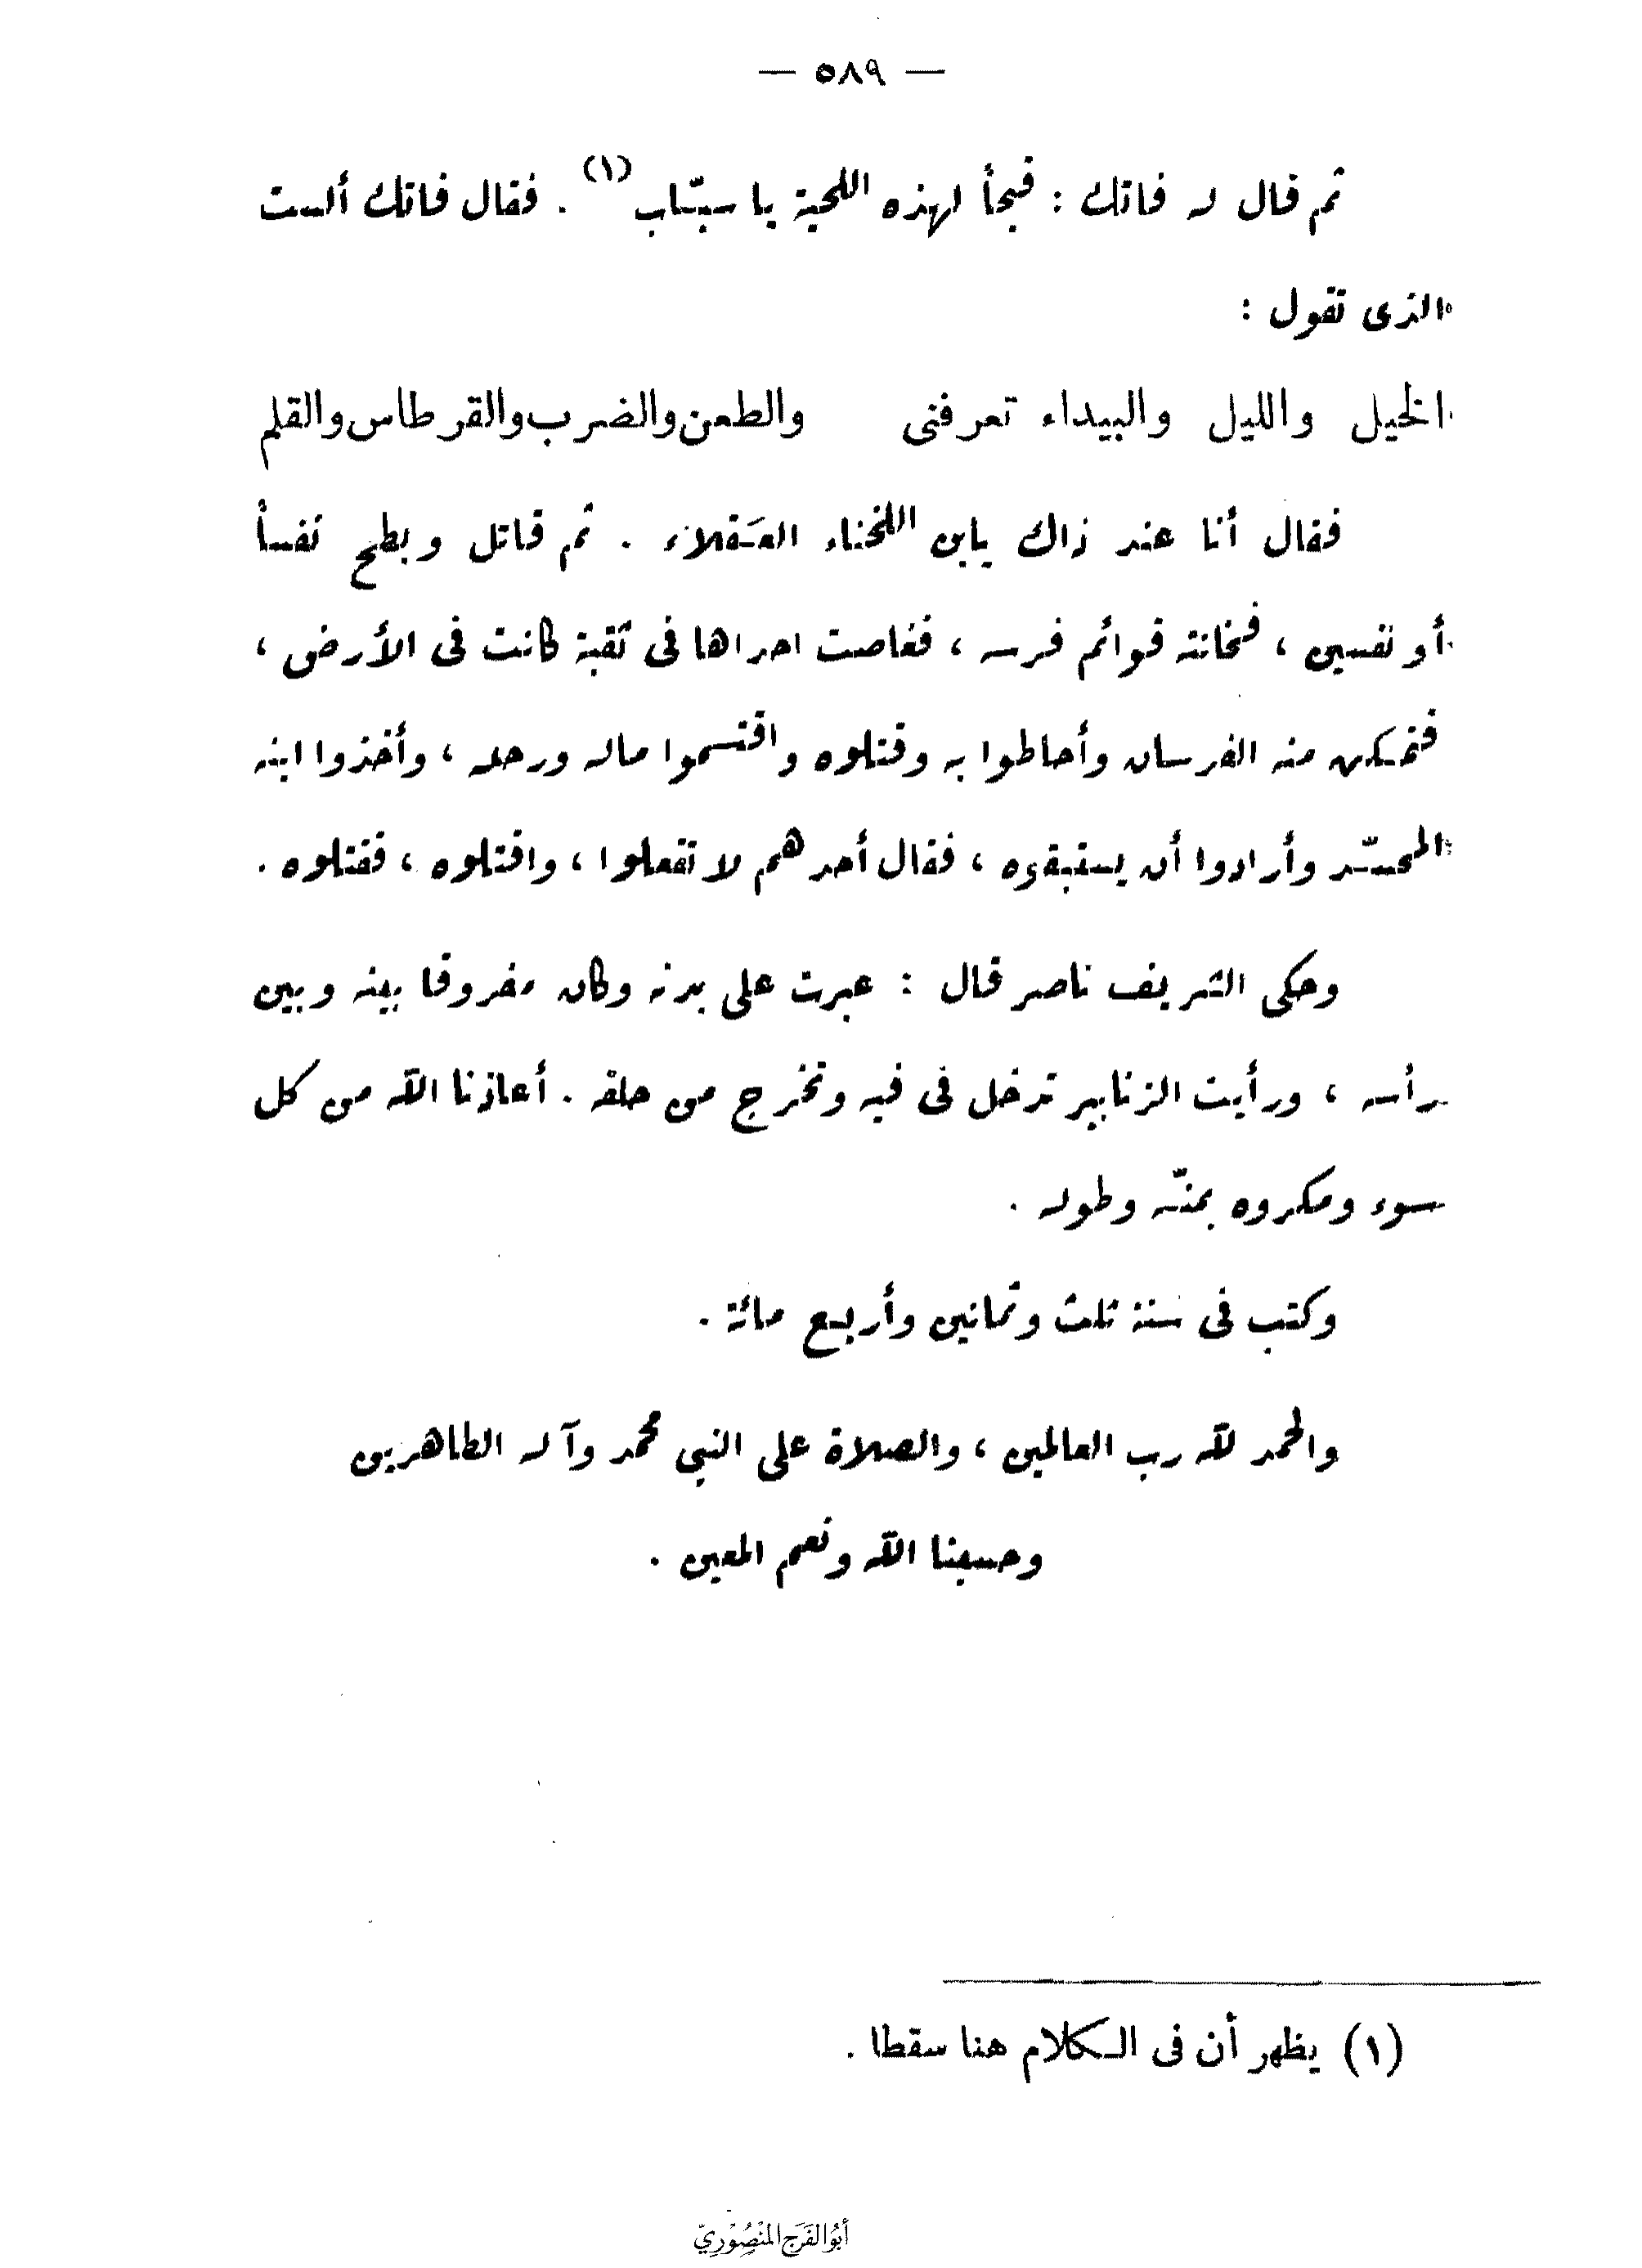 — ٥٨٩ —
ثم قال له فاتك : قبحاً لهذه اللحية يا سبّاب (١) . فقال فاتك ألست
الذى تقول :
الخيل والليل والبيداء تعرفنى والطعن والضرب والقرطاس والقلم
فقال أنا عند ذاك يابن اللخناء العَفلاء . ثم قاتل وبطح نفساً
أو نفسين ، فخانته قوائم فرسه ، فغاصت احداها فى ثقبة كانت فى الأرض ،
فتمكن منه الفرسان وأحاطوا به وقتلوه واقتسموا ماله ورحله ، وأخذوا ابنه
المحسّد وأرادوا أن يستبقوه ، فقال أحدهم لا تفعلوا ، واقتلوه ، فقتلوه .
وحكى الشريف ناصر قال : عبرت على بدنه وكان مفروقا بينه وبين
رأسه ، ورأيت الزنابير تدخل فى فيه وتخرج من حلقه . أعاذنا الله من كل
سوء ومكروه بمنّه وطوله .
وكتب فى سنة ثلث وثمانين وأربع مائة .
والحمد لله رب العالمين ، والصلاة على النبى محمد وآله الطاهرين
وحسبنا الله ونعم المعين .
(١) يظهر أن فى الكلام هنا سقطا .
أبُو الفَرَج المنْصُوْريّ